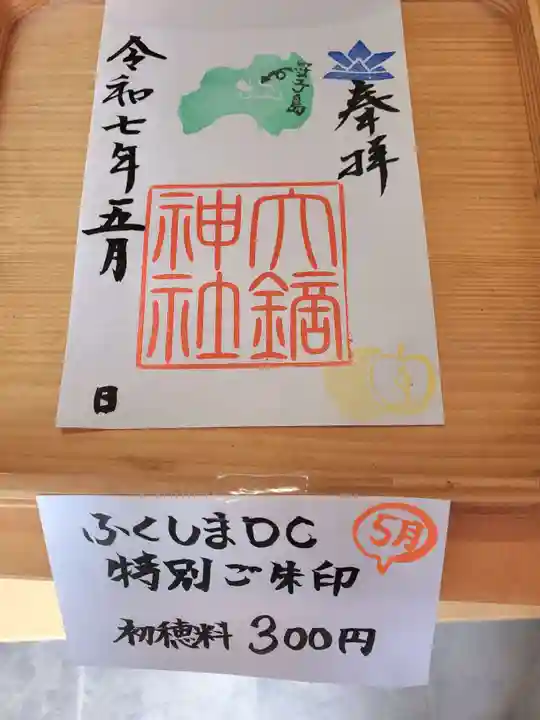 奉拝
大鏑
神社
令和七年五月
日
ふくしまDC
特別ご朱印
5月
初穂料 300円